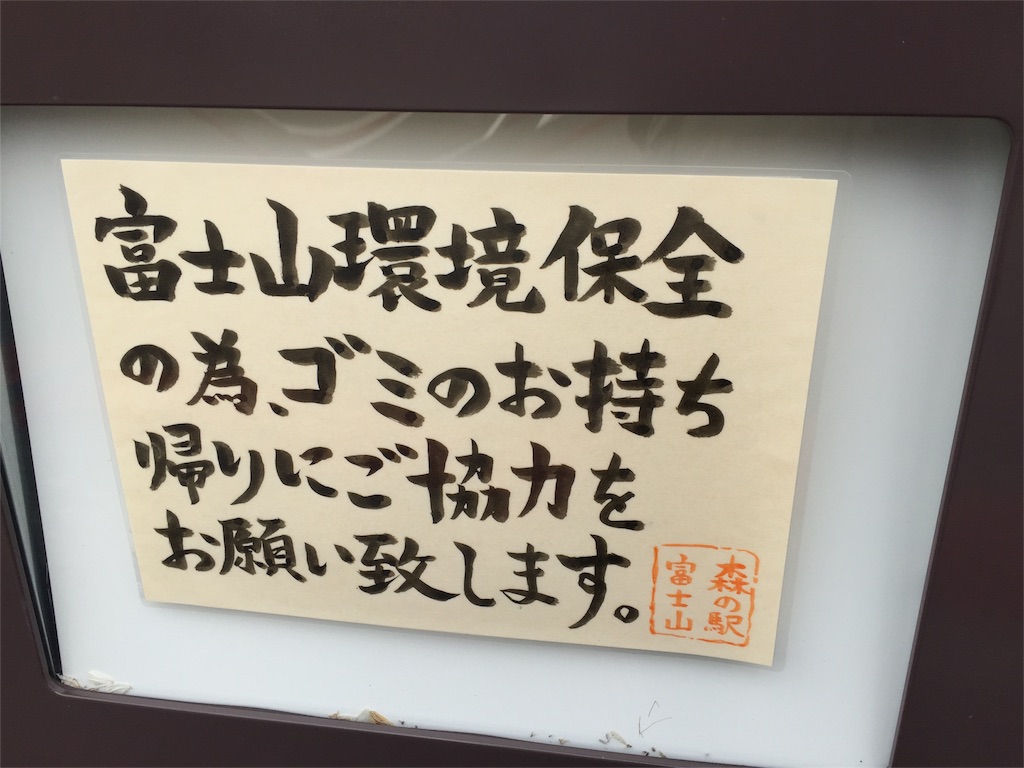 富士山環境保全
の為、ゴミのお持ち
帰りにご協力を
お願い致します。
森の駅
富士山